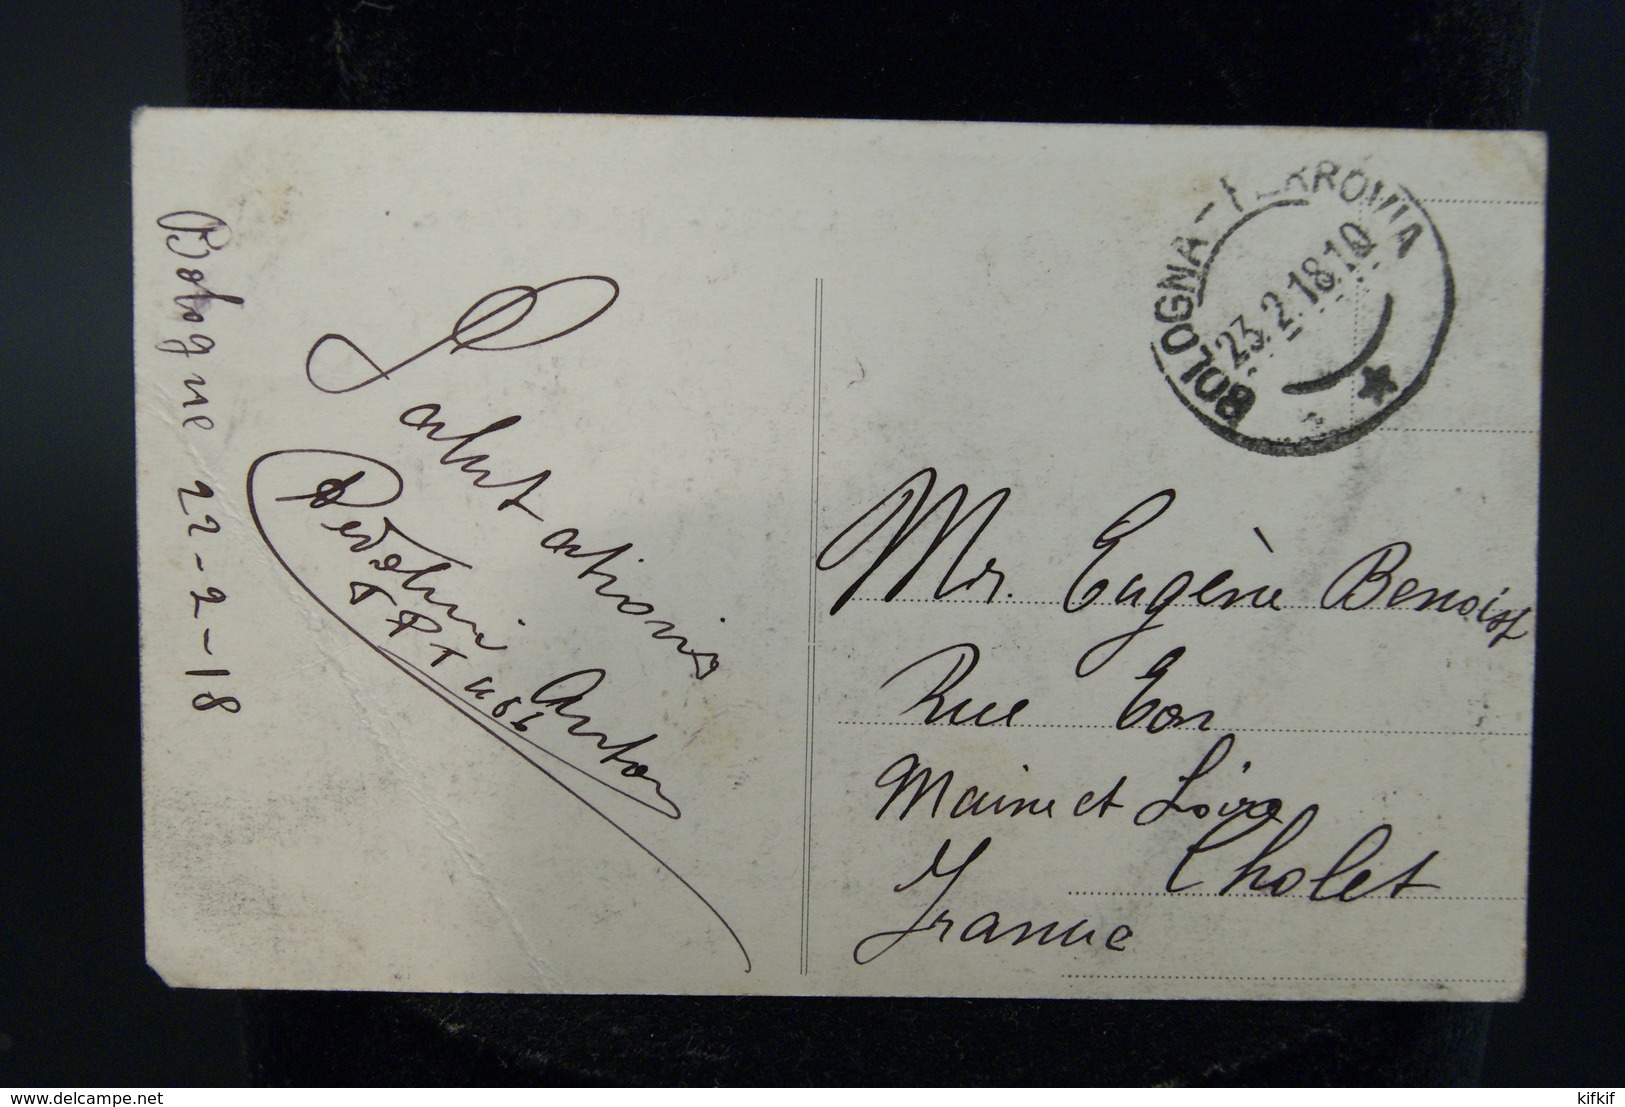 Bologne 22-2-18
Salutations
Anton
BOLOGNA - FERROVIA
23.2.18 10
Mr. Eugène Benoist
Rue
Maine et Loire
Cholet
France
delcampe.net
kifkif